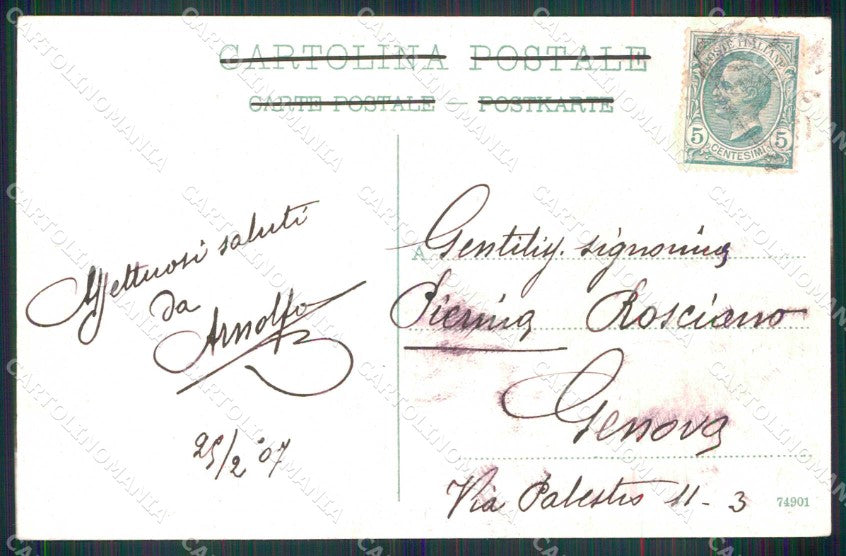 CARTOLINA POSTALE
CARTE POSTALE — POSTKARTE
POSTE ITALIANE
5 CENTESIMI 5
Affettuosi saluti
da
Arnolfo
25/2°07
A Gentilis. signorina
Pierina Rosciano
Genova
Via Palestro 11-3
74901
CARTOLINOMANIA